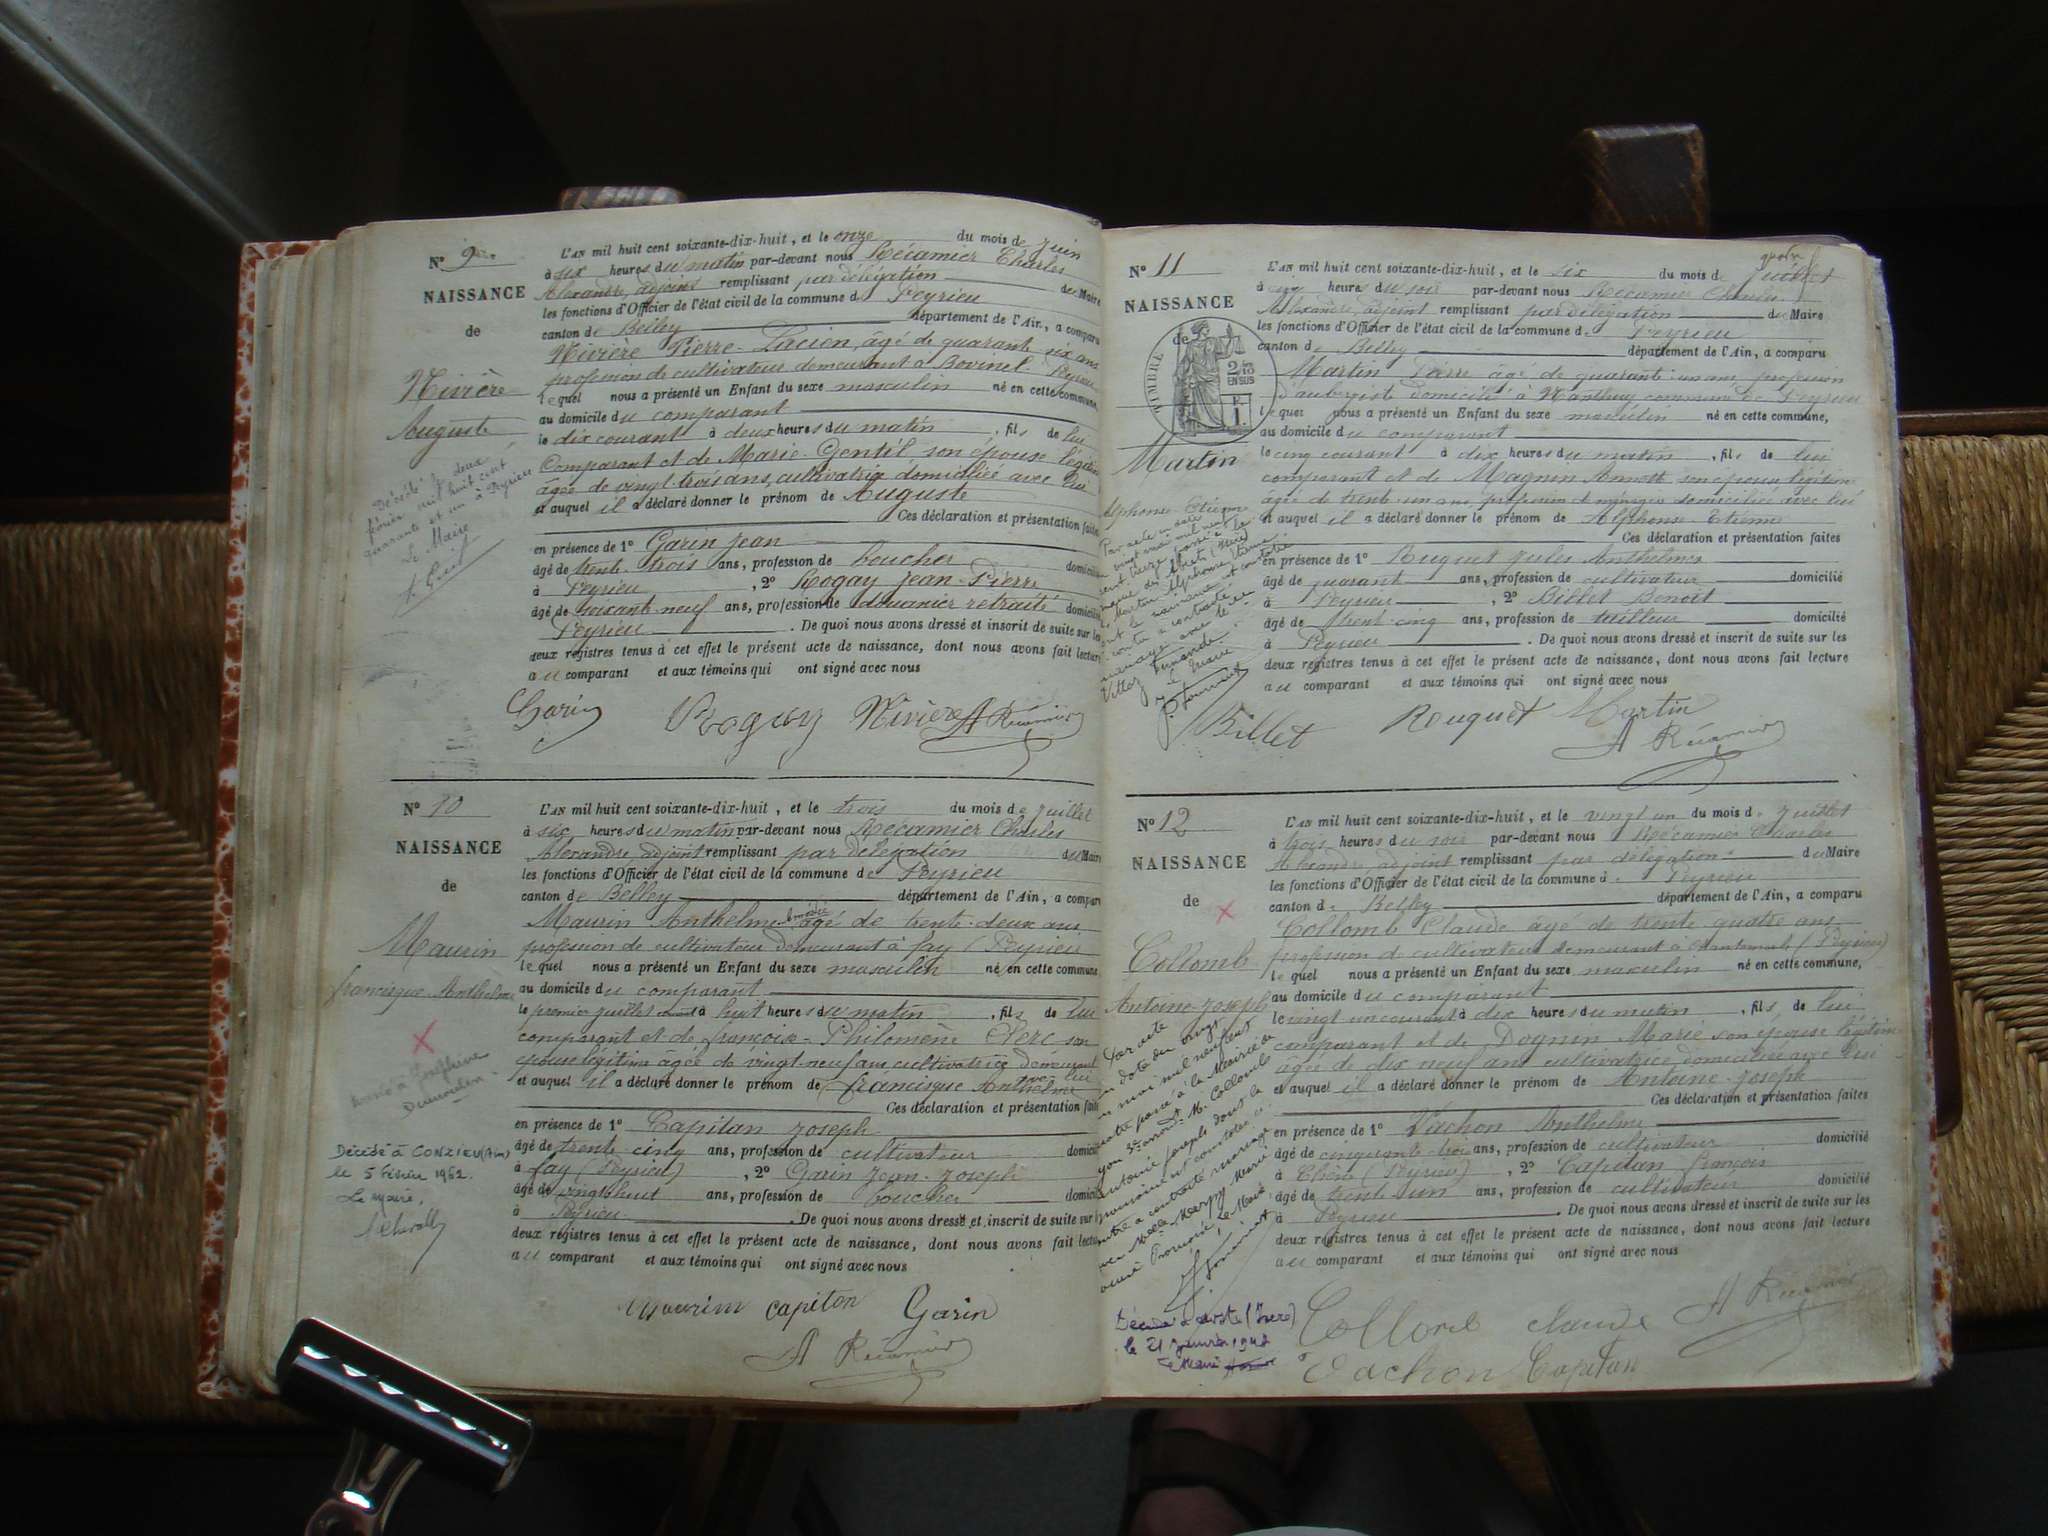 N° 9
NAISSANCE
de
Rivière
Auguste
Décédé le deux
février mil huit cent
quarante et un
à Peyrieu
Le Maire
L'AN mil huit cent soixante-dix-huit, et le onze du mois de Juin
à six heures du matin par-devant nous Récamier Charles
Alexandre, adjoint remplissant par délégation du Maire
les fonctions d'Officier de l'état civil de la commune de Peyrieu
canton de Belley département de l'Ain, a comparu
Rivière Pierre-Lucien, âgé de quarante six ans
profession de cultivateur demeurant à Bovinel Peyrieu
lequel nous a présenté un Enfant du sexe masculin né en cette commune,
au domicile du comparant
le dix courant à deux heures du matin, fils de lui
comparant et de Marie Gentil, son épouse légitime
âgée de vingt-trois ans, cultivatrice domiciliée avec lui
et auquel il a déclaré donner le prénom de Auguste
Ces déclaration et présentation faites
en présence de 1° Garin Jean
âgé de trente-trois ans, profession de boucher domicilié
à Peyrieu, 2° Rogay Jean-Pierre
âgé de soixante-neuf ans, profession de douanier retraité domicilié
Peyrieu. De quoi nous avons dressé et inscrit de suite sur les
deux registres tenus à cet effet le présent acte de naissance, dont nous avons fait lecture
au comparant et aux témoins qui ont signé avec nous
Garin Roguy Rivière A Récamier
N° 10
NAISSANCE
de
Maurin
francisque Anthelme
Marié à Joséphine
Dumoulin
Décédé à CONZIEU (Ain)
le 5 Février 1962.
Le Maire,
L'AN mil huit cent soixante-dix-huit, et le trois du mois de Juillet
à six heures du matin par-devant nous Récamier Charles
Alexandre, adjoint remplissant par délégation du Maire
les fonctions d'Officier de l'état civil de la commune de Peyrieu
canton de Belley département de l'Ain, a comparu
Maurin Anthelme Amédée âgé de trente-deux ans
profession de cultivateur demeurant à fay (Peyrieu
lequel nous a présenté un Enfant du sexe masculin né en cette commune
au domicile du comparant
le premier juillet à huit heures du matin, fils de lui
comparant et de françoise-Philomène Clerc son
épouse légitime âgée de vingt-neuf ans, cultivatrice demeurant
avec lui
et auquel il a déclaré donner le prénom de francisque Anthelme
Ces déclaration et présentation faites
en présence de 1° Capitan Joseph
âgé de trente cinq ans, profession de cultivateur domicilié
à fay (Peyrieu), 2° Garin Jean-Joseph
âgé de vingt-huit ans, profession de boucher domicilié
à Peyrieu. De quoi nous avons dressé et inscrit de suite sur les
deux registres tenus à cet effet le présent acte de naissance, dont nous avons fait lecture
au comparant et aux témoins qui ont signé avec nous
Maurin capitan Garin
A Récamier
N° 11
NAISSANCE
de
TIMBRE
2/10
EN SUS
1
F.
Martin
Alphonse-Etienne
Par acte en date
Martin Alphonse Etienne
a contracté
mariage avec
Fernande
Le Maire
L'AN mil huit cent soixante-dix-huit, et le six du mois de Juillet
à six heures du soir par-devant nous Récamier Charles
Alexandre, adjoint remplissant par délégation du Maire
les fonctions d'Officier de l'état civil de la commune de Peyrieu
canton de Belley département de l'Ain, a comparu
Martin Pierre âgé de quarante-un ans, profession
d'aubergiste domicilié à Nanthuy commune de Peyrieu
lequel nous a présenté un Enfant du sexe masculin né en cette commune,
au domicile du comparant
le cinq courant à dix heures du matin, fils de lui
comparant et de Magnin Annette son épouse légitime
âgée de trente-un ans, profession de ménagère domiciliée avec lui
et auquel il a déclaré donner le prénom de Alphonse-Etienne
Ces déclaration et présentation faites
en présence de 1° Ruguet Jules Anthelme
âgé de quarante ans, profession de cultivateur domicilié
à Peyrieu, 2° Billet Benoît
âgé de trente-cinq ans, profession de tailleur domicilié
à Peyrieu. De quoi nous avons dressé et inscrit de suite sur les
deux registres tenus à cet effet le présent acte de naissance, dont nous avons fait lecture
au comparant et aux témoins qui ont signé avec nous
Billet Rouquet Martin
A Récamier
N° 12
NAISSANCE
de
Collomb
Antoine-Joseph
Par acte
en date du onze
mai mil neuf cent
quatre passé à la Mairie de
Lyon 3e arrondt M. Collomb
Antoine Joseph dont la
naissance est constatée ci-
contre a contracté mariage
avec Melle Marie
Le Maire
Décédé à Aoste (Isère)
le 21 Janvier 1942
Le Maire
L'AN mil huit cent soixante-dix-huit, et le vingt un du mois de Juillet
à trois heures du soir par-devant nous Récamier Charles
Alexandre, adjoint remplissant par délégation du Maire
les fonctions d'Officier de l'état civil de la commune de Peyrieu
canton de Belley département de l'Ain, a comparu
Collomb Claude âgé de trente quatre ans
profession de cultivateur demeurant à (Peyrieu)
lequel nous a présenté un Enfant du sexe masculin né en cette commune,
au domicile du comparant
le vingt un courant à dix heures du matin, fils de lui
comparant et de Dognin Marie son épouse légitime
âgée de dix neuf ans cultivatrice domiciliée avec lui
et auquel il a déclaré donner le prénom de Antoine-Joseph
Ces déclaration et présentation faites
en présence de 1° Vachon Anthelme
âgé de cinquante trois ans, profession de cultivateur domicilié
à (Peyrieu), 2° Capitan François
âgé de trente un ans, profession de cultivateur domicilié
à Peyrieu. De quoi nous avons dressé et inscrit de suite sur les
deux registres tenus à cet effet le présent acte de naissance, dont nous avons fait lecture
au comparant et aux témoins qui ont signé avec nous
Collomb claude A Récamier
Vachon Capitan